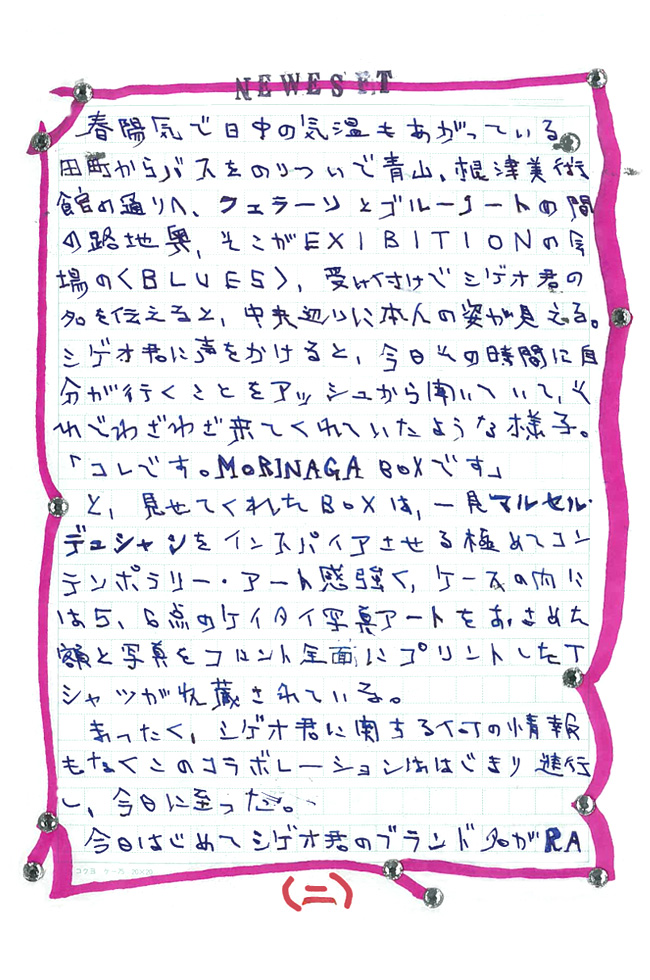 NEWESET
春陽気で日中の気温もあがっている
田町からバスをのりついで青山、根津美術
館の通りへ、フェラーリとブルーノートの間
の路地奥、そこがEXIBITIONの会
場の〈BLUES〉、受け付けでシゲオ君の
名を伝えると、中央辺りに本人の姿が見える。
シゲオ君に声をかけると、今日その時間に自
分が行くことをアッシュから聞いていて、そ
れでわざわざ来てくれていたような様子。
「コレです。MORINAGA BOXです」
と、見せてくれたBOXは、一見マルセル・
デュシャンをインスパイアさせる極めてコン
テンポラリー・アート感強く、ケースの内に
は5、6点のケイタイ写真アートをおさめた
額と写真をフロント全面にプリントしたT
シャツが収蔵されている。
まったく、シゲオ君に関する の情報
もなくこのコラボレーションははじまり進行
し、今日に至った。
今日はじめてシゲオ君のブランド名がRA
コクヨ ケ-75 20×20
(二)